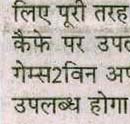 लिए पूरी तरह
कैफे पर उपल
गेम्स2विन अप
उपलब्ध होगा